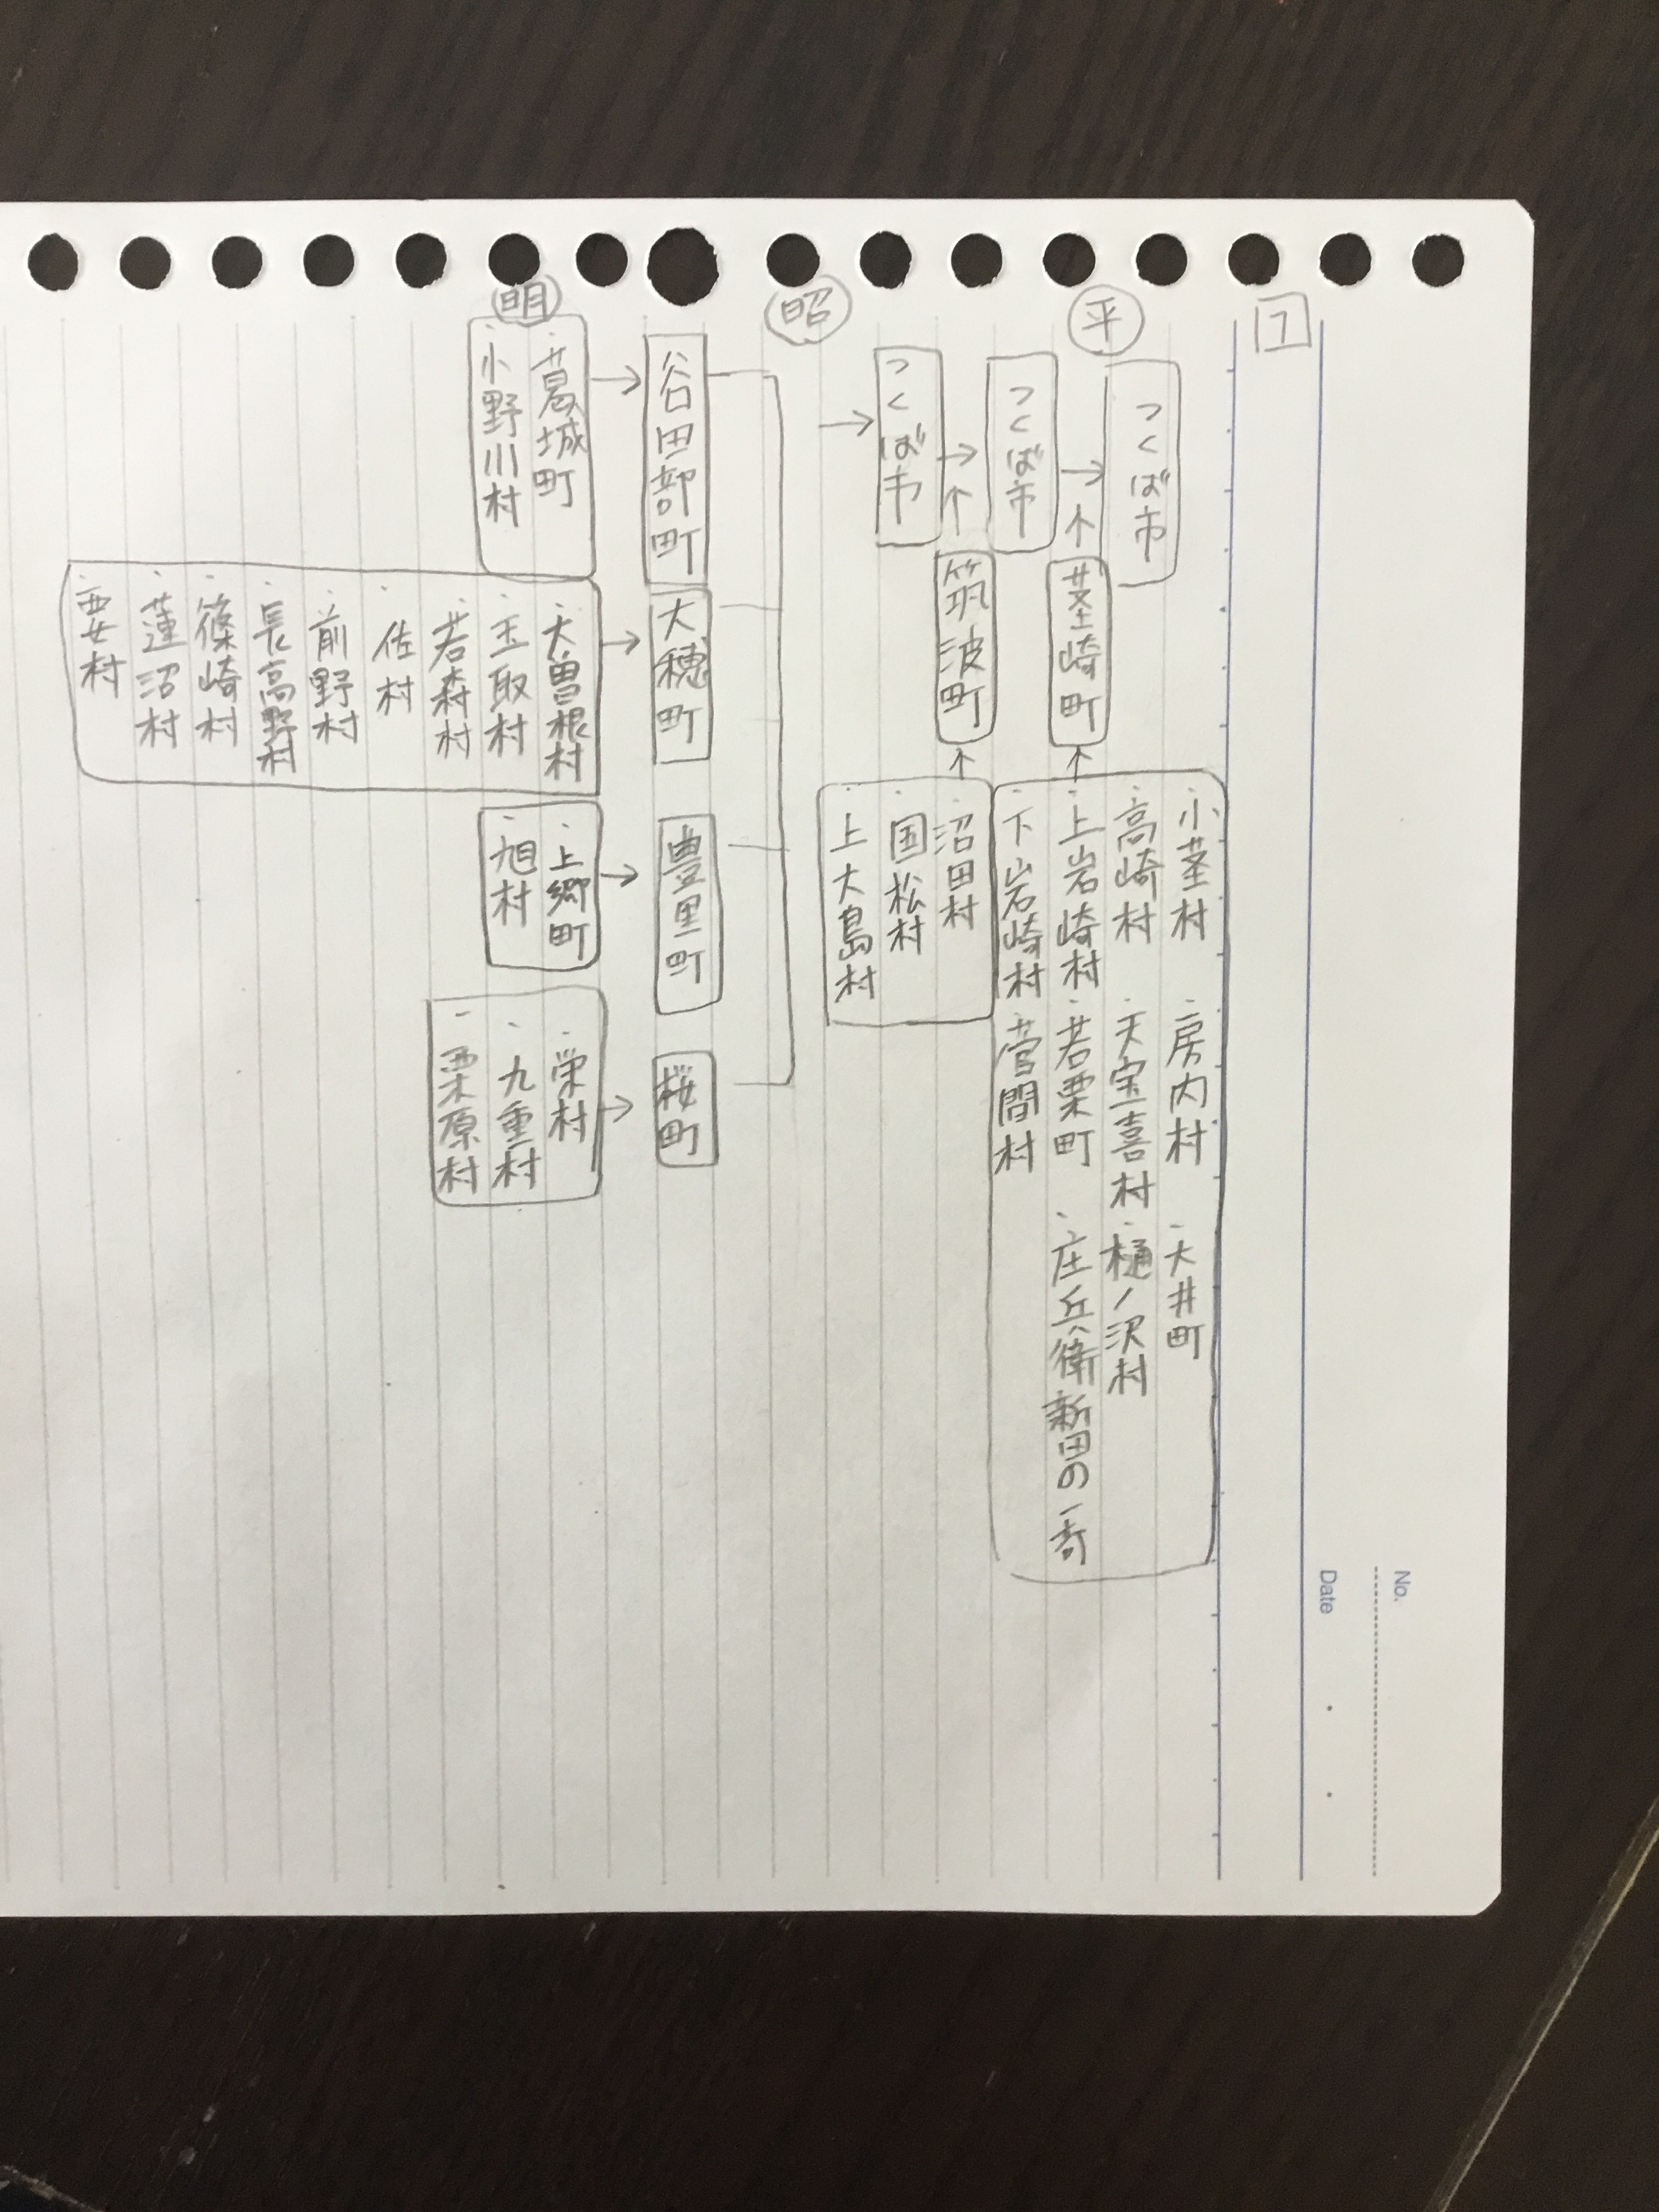 No.
Date
1
平
つくば市
つくば市
茎崎町
・小茎村
・高崎村
・上岩崎村
・下岩崎村
・房内村
・天宝喜村
・若栗町
・菅間村
・大井町
・樋ノ沢村
・庄兵衛新田の一部
昭
つくば市
筑波町
・沼田村
・国松村
・上大島村
谷田部町
大穂町
豊里町
桜町
明
・葛城町
・小野川村
・大曽根村
・玉取村
・若森村
・佐村
・前野村
・長高野村
・篠崎村
・蓮沼村
・要村
・上郷町
・旭村
・栄村
・九重村
・栗原村